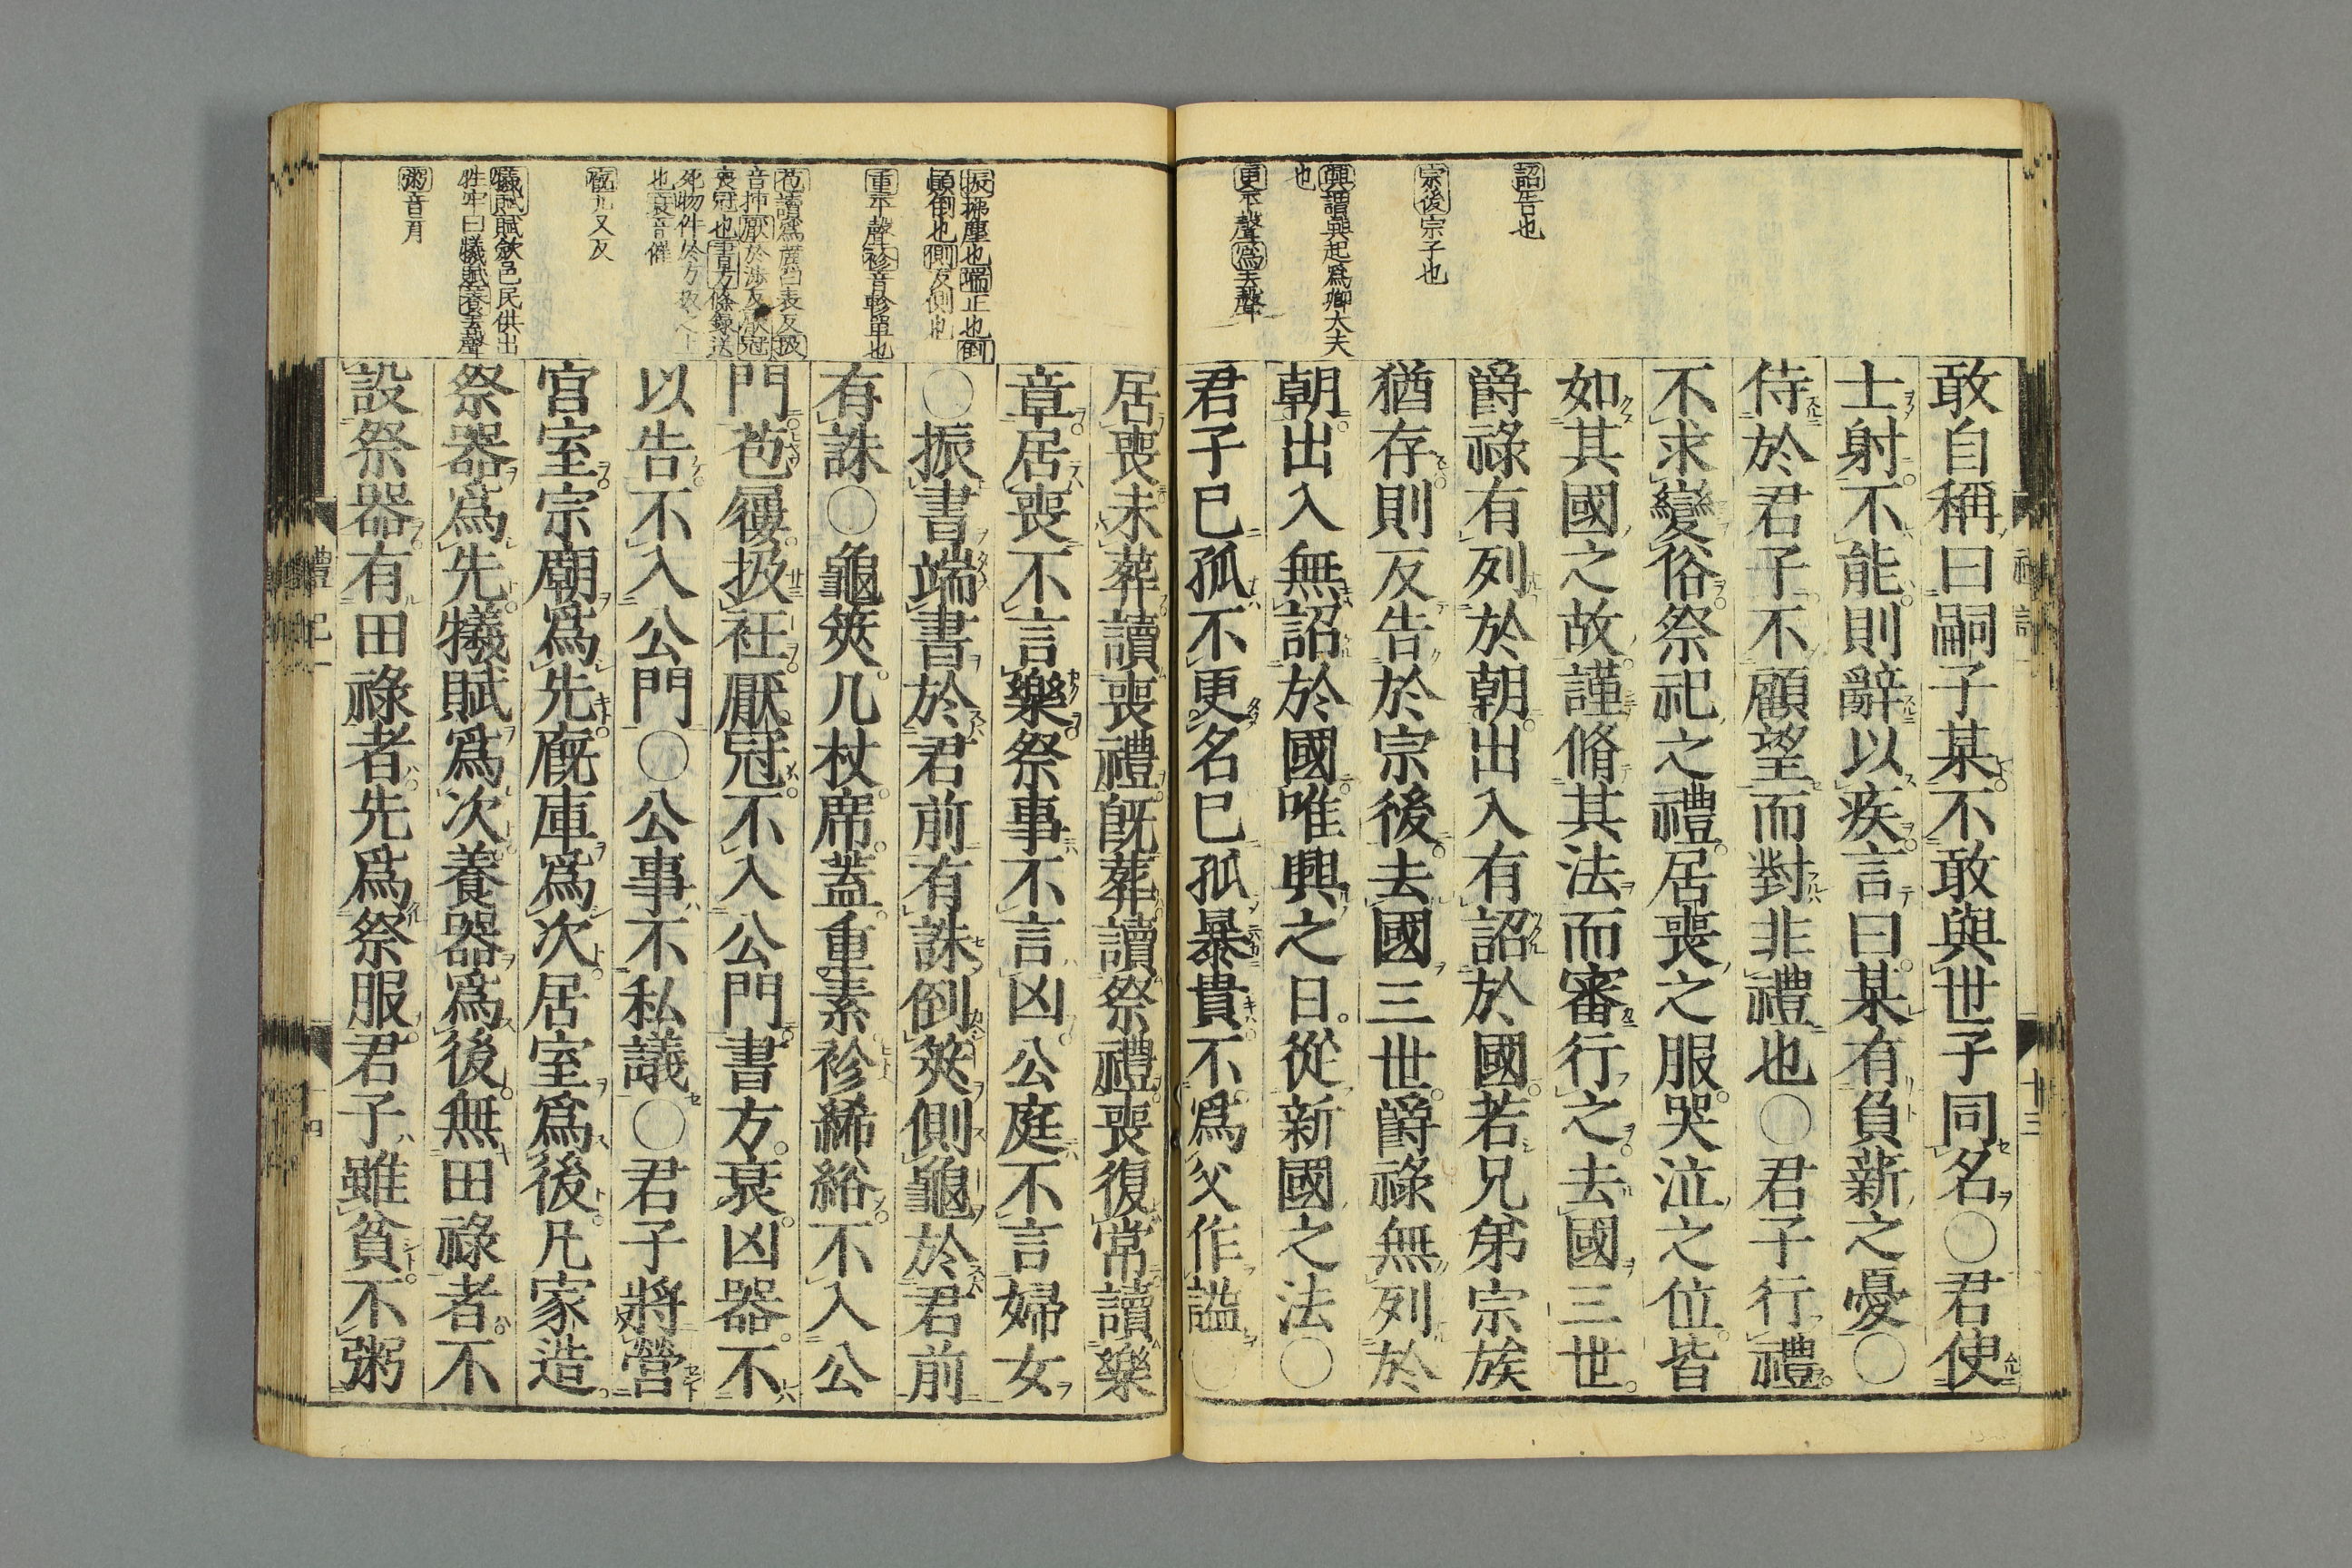 詔告也
宗後宗子也
興謂興起爲卿大夫
也
更平聲爲去聲
敢自稱曰嗣子某不敢與世子同名○君使
士射不能則辭以疾言曰某有負薪之憂○
侍於君子不顧望而對非禮也○君子行禮
不求變俗祭祀之禮居喪之服哭泣之位皆
如其國之故謹脩其法而審行之去國三世
爵祿有列於朝出入有詔於國若兄弟宗族
猶存則反告於宗後去國三世爵祿無列於
朝出入無詔於國唯興之日從新國之法○
君子已孤不更名已孤暴貴不爲父作謚○
振拂塵也端正也倒
顚倒也側反側也
重平聲袗音軫單也
苞讀爲藨白表反扱
音揷厭於涉反厭冠
喪冠也書方條錄送
死物件於方板之上
也衰音催
廐九又反
犧賦賦斂邑民供出
牲牢曰犧賦養去聲
粥音育
居喪未葬讀喪禮旣葬讀祭禮喪復常讀樂
章居喪不言樂祭事不言凶公庭不言婦女
○振書端書於君前有誅倒筴側龜於君前
有誅○龜筴几杖席蓋重素袗絺綌不入公
門苞屨扱衽厭冠不入公門書方衰凶器不
以告不入公門○公事不私議○君子將營
宮室宗廟爲先廐庫爲次居室爲後凡家造
祭器爲先犧賦爲次養器爲後無田祿者不
設祭器有田祿者先爲祭服君子雖貧不粥
禮記一